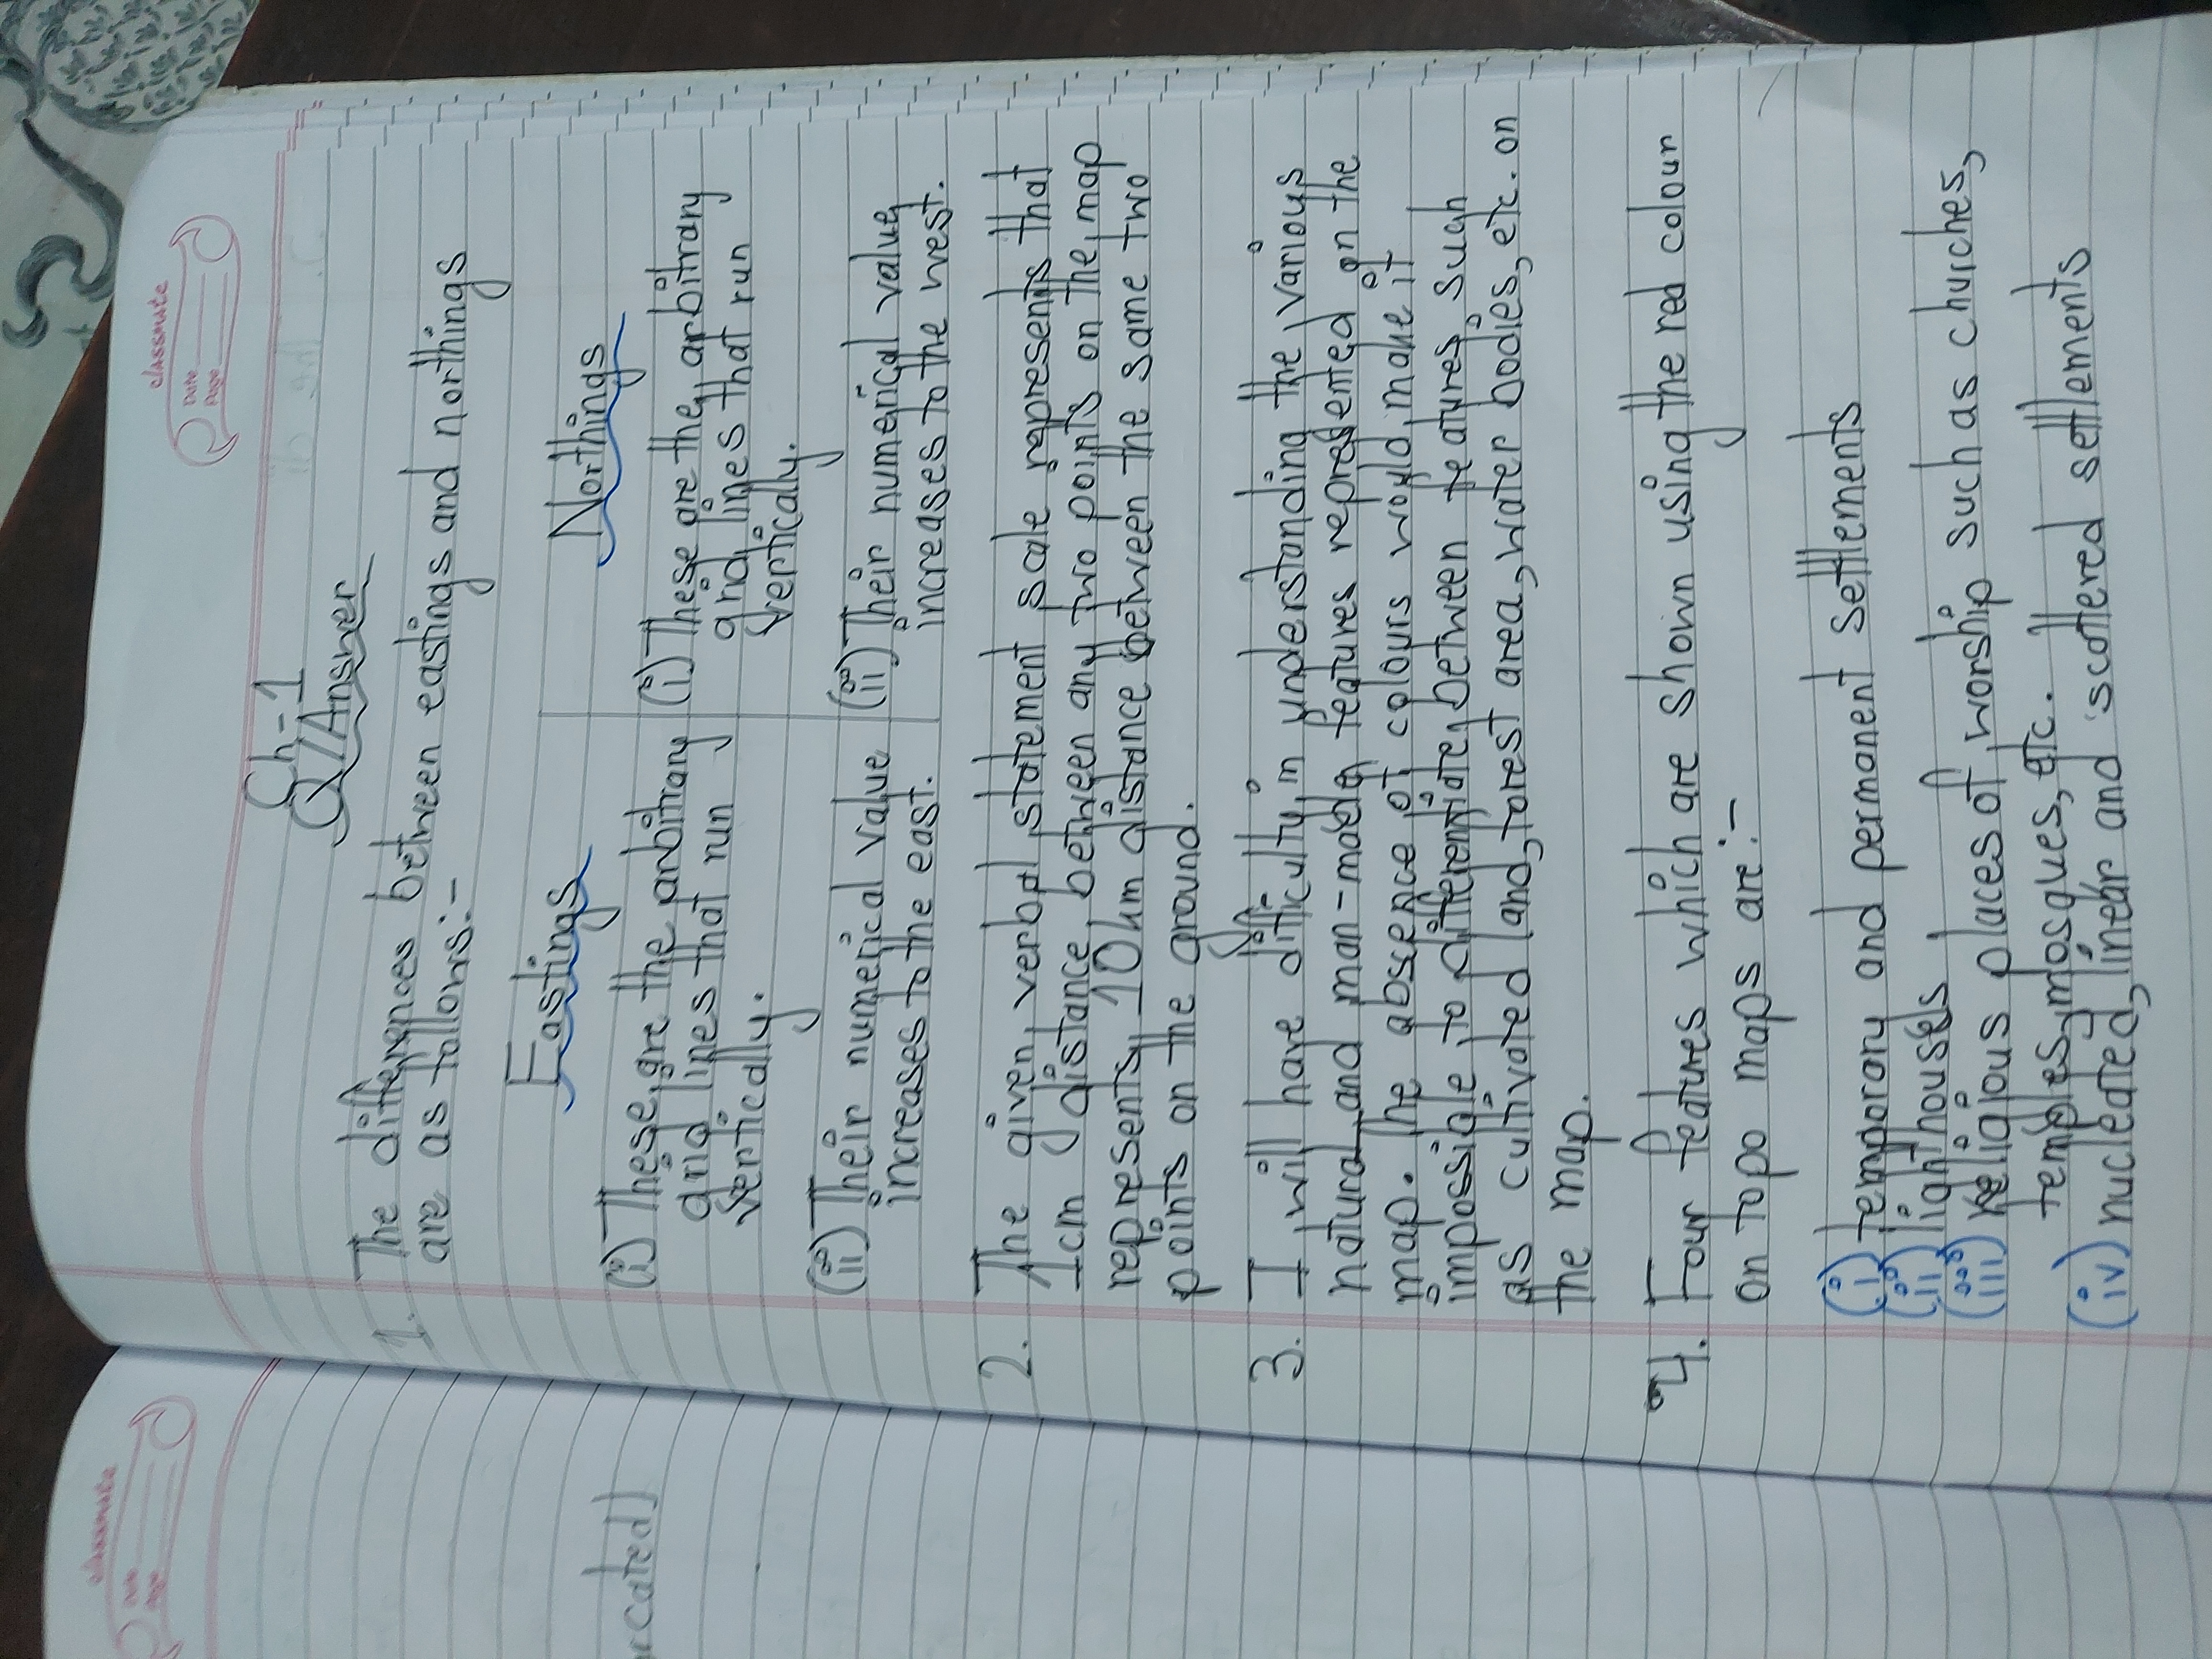 classmate
Date
Page
Ch-1
Q/Answer
1. The differences between eastings and northings
are as follows:-
Eastings
Northings
(i) These are the arbitrary
grid lines that run
vertically.
(ii) Their numerical value
increases to the east.
(i) These are the arbitrary
grid lines that run
vertically.
(ii) Their numerical value
increases to the west.
2. The given verbal statement scale represents that
1cm distance between any two points on the map
represents 10km distance between the same two
points on the ground.
3. I will have difficulty in understanding the various
natural and man-made features represented on the
map. The absence of colours would make it
impossible to differentiate between features such
as cultivated land, forest area, water bodies, etc. on
the map.
4. Four features which are shown using the red colour
on topo maps are:-
(i) temporary and permanent settlements
(ii) lighthouses
(iii) religious places of worship such as churches,
temples, mosques, etc.
(iv) nucleated, linear and scattered settlements
classmate
Date
Page